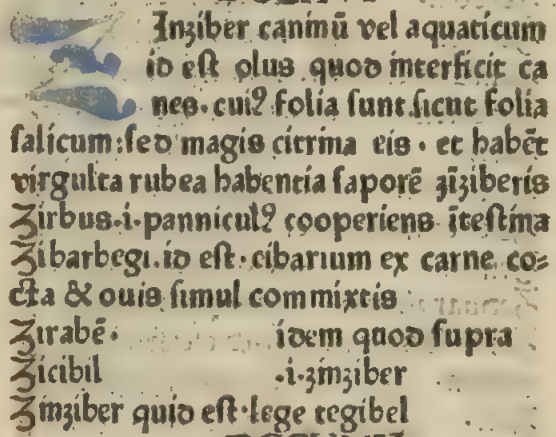 Zinziber caninū vel aquaticum
id est olus quod interficit ca
nes. cuiꝰ folia sunt sicut folia
salicum: sed magis citrina eis. et habēt
virgulta rubea habentia saporē zīziberis
Zirbus .i. panniculꝰ cooperiens ītestina
Zibarbegi. id est. cibarium ex carne co-
cta & ouis simul commixtis
Zirabē. idem quod supra
Zicibil .i. zinziber
Zinziber quid est. lege tegibel